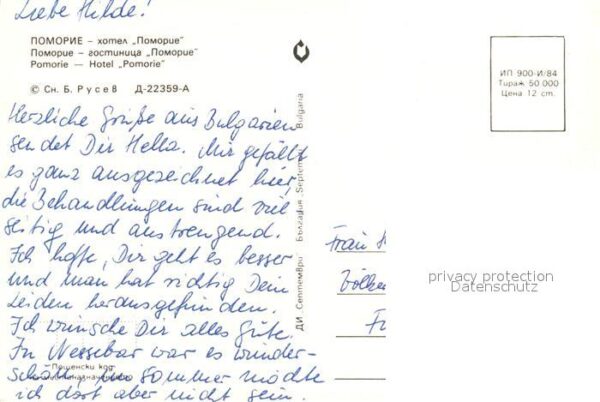 Liebe Hilde!
ПОМОРИЕ – хотел „Поморие"
Поморие – гостиница „Поморие"
Pomorie – Hotel „Pomorie"
© Сн. Б. Русев Д-22359-А
ИП 900-И/84
Тираж 50 000
Цена 12 ст.
Herzliche Grüße aus Bulgarien
sendet Dir Hella. Mir gefällt
es ganz ausgezeichnet hier,
die Behandlungen sind viel
seitig und anstrengend.
Ich hoffe, Dir geht es besser
und man hat richtig Dein
Leiden herausgefunden.
Ich wünsche Dir alles Gute.
In Nessebar war es wunder-
schön, im Sommer möchte
ich dort aber nicht sein.
ДИ „Септември" България „Septemvri" Bulgaria
Frau
privacy protection
Datenschutz
Пощенски код